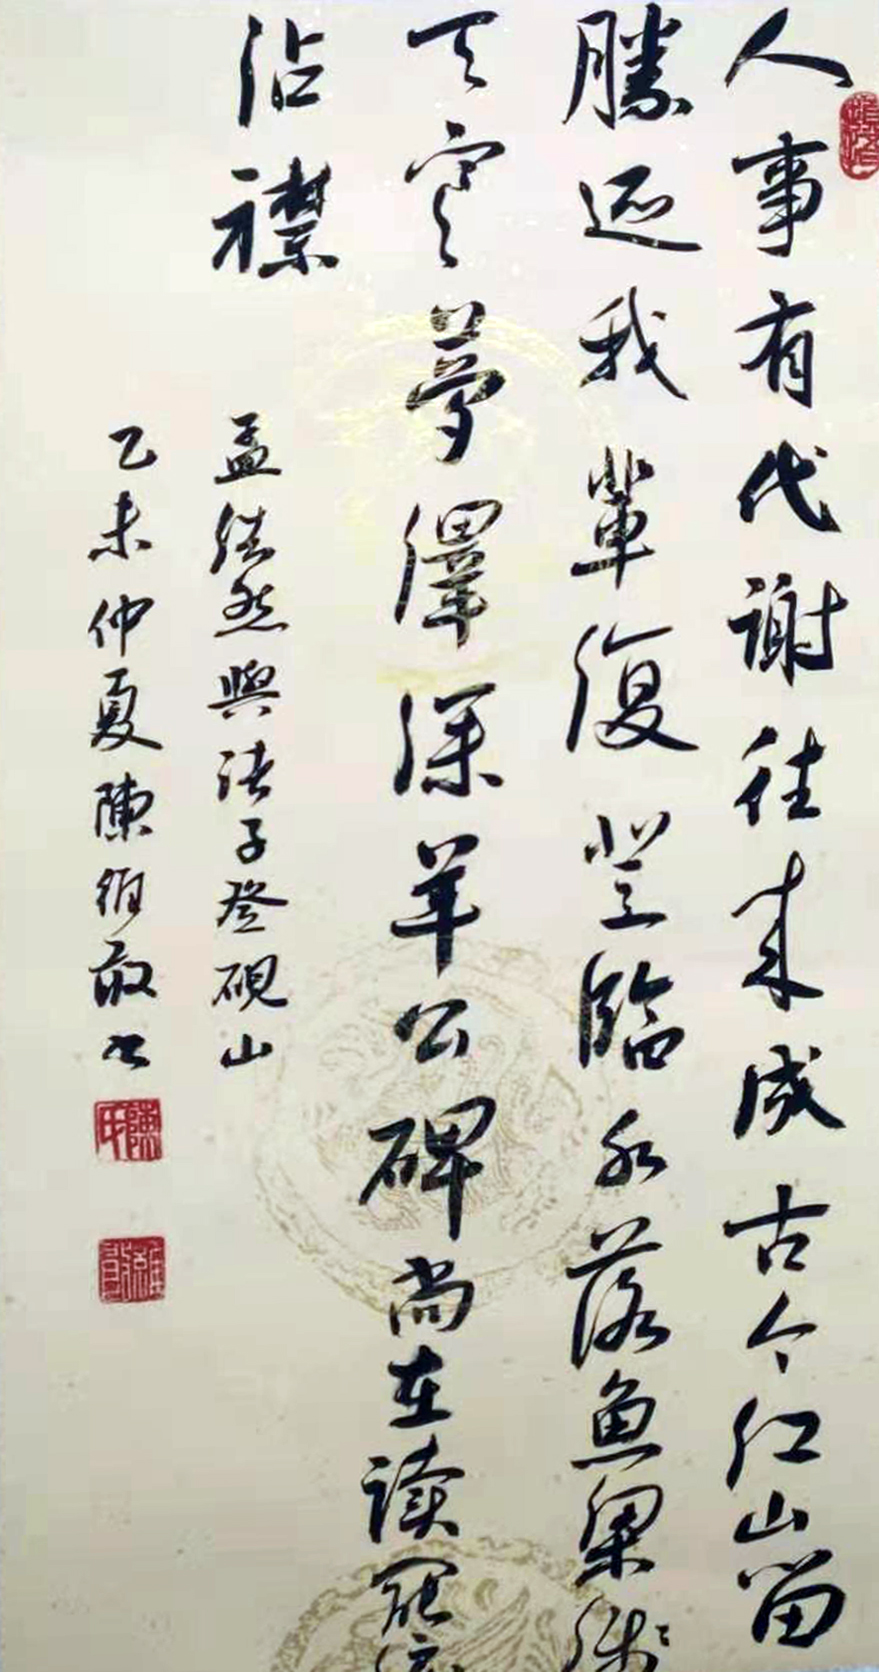 人事有代謝往來成古今江山留
勝迹我輩復登臨水落魚梁淺
天寒夢澤深羊公碑尚在读罷泪
沾襟
孟浩然與诸子登硯山
乙未仲夏陳維敬书